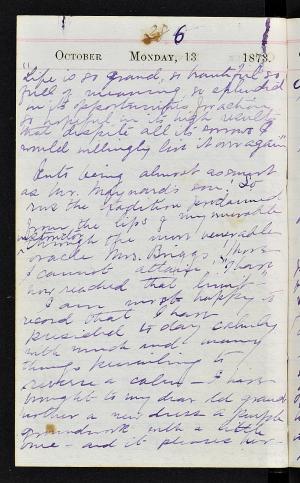 6
October Monday, 13 1873.
"Life is so grand, so beautiful so
full of meaning, so splendid
in its opportunities for action,
so hopeful in its high results
that despite all its sorrows I
would willingly live it over again"
being almost as smart
as Mr. Maynard's son," So
runs the tradition proclaimed
from the lips of my venerable
through the more venerable
oracle Mrs. Briggs, "more
I cannot attain" I have
now reached that limit -
I am most happy to
record that I have
presided to day calmly
with much and many
things to
a calm - I have
brought to my dear old grand
mother a new dress a purple
groundwork with a little
- and it pleases her -